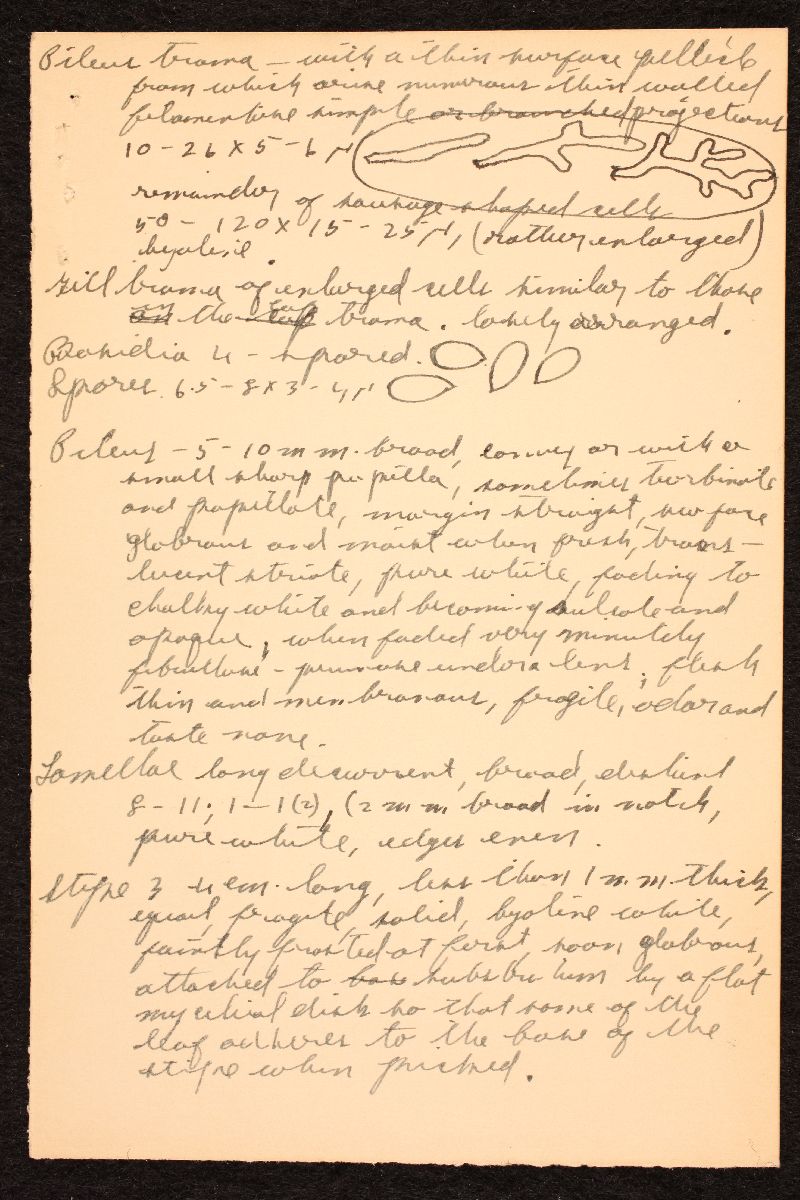 Pileus trama – with a thin surface pellicle
from which arise numerous thin walled
filamentose simple or branched projections
10 – 26 x 5 – 6 μ
remainder of sausage shaped cells
50 – 120 x 15 – 25 μ, (rather enlarged)
hyaline.
Gill trama of enlarged cells similar to those
in the trama. loosely arranged.
Basidia 4 – spored.
Spores. 6.5 – 8 x 3 – 4 μ
Pileus – 5 – 10 mm. broad, convex or with a
small sharp papilla, sometimes turbinate
and papillate, margin straight, surface
glabrous and moist when fresh, trans–
lucent striate, pure white, fading to
chalky white and becoming sulcate and
opaque, when faded very minutely
fibrillose – pruinose under a lens; flesh
thin and membranous, fragile, odor and
taste none.
Lamellae long decurrent, broad, distant
8 – 11; 1 – 1(2), (2 mm broad in notch,
pure white, edges even.
Stipe 3 4 cm. long, less than 1 mm. thick,
equal, fragile, solid, hyaline white,
faintly frosted at first, soon glabrous,
attached to bas substratum by a flat
mycelial disk so that some of the
leaf adheres to the base of the
stipe when picked.